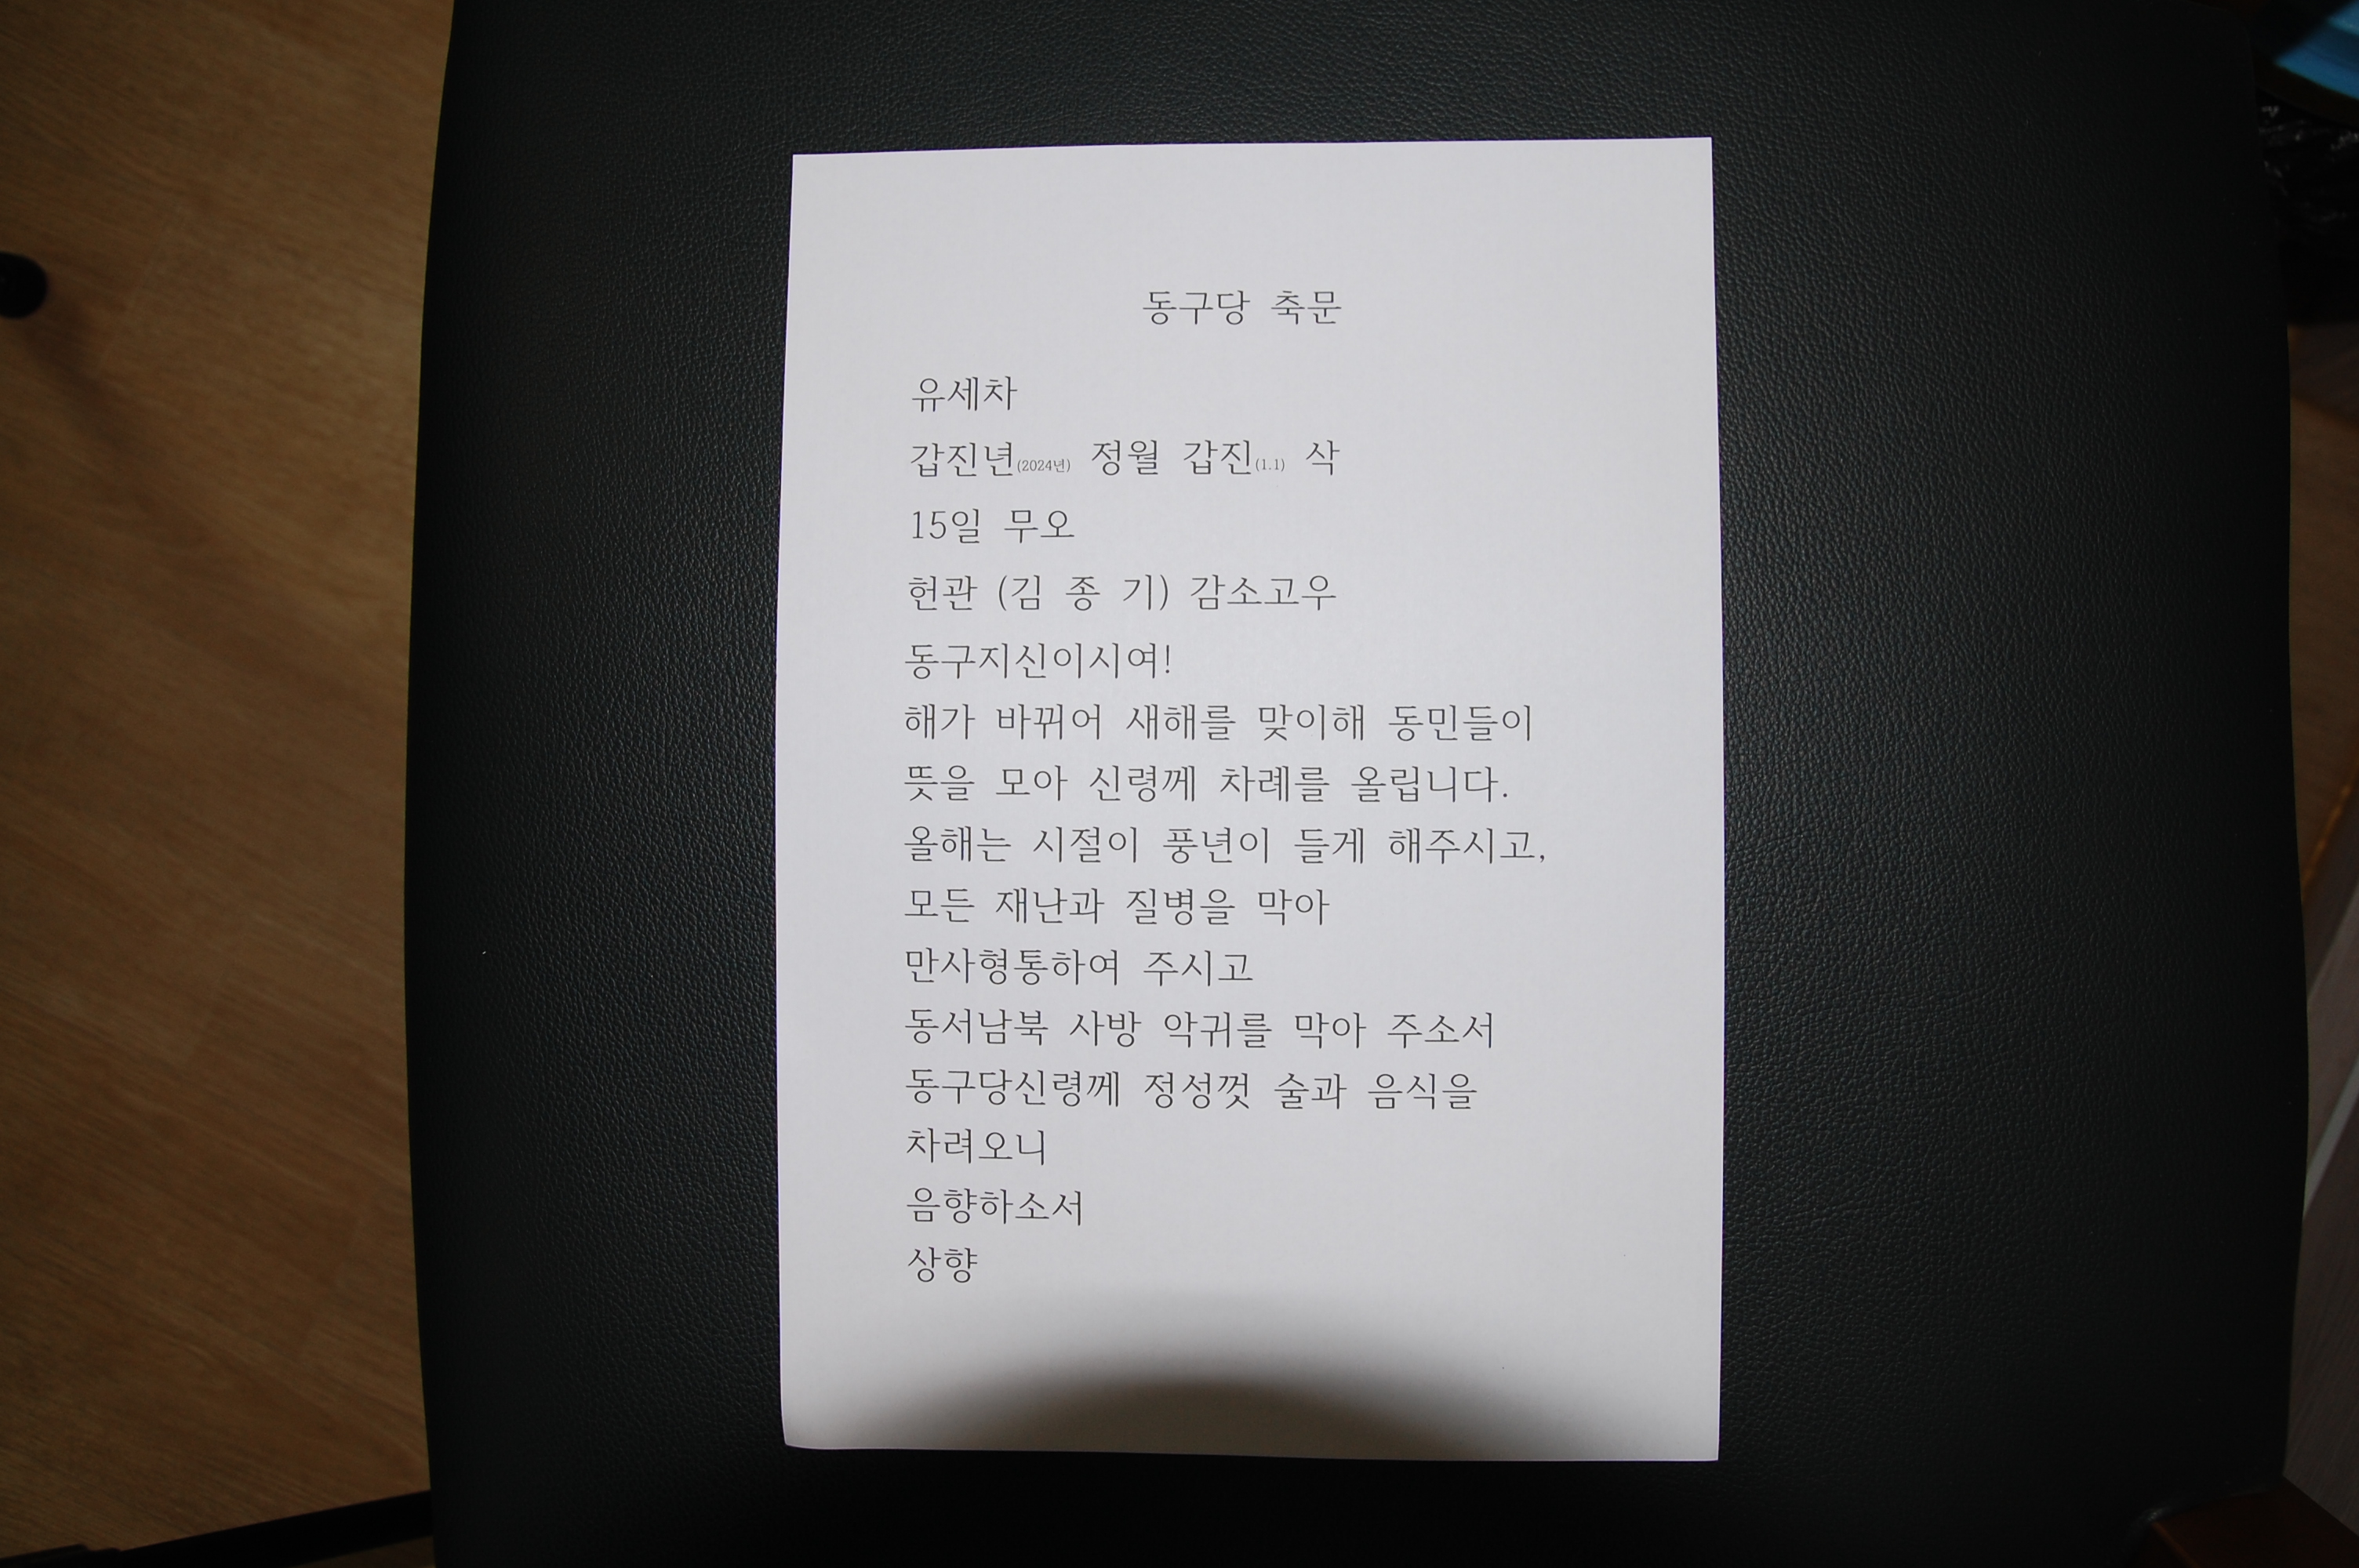 동구당 축문
유세차
갑진년(2024년) 정월 갑진(1.1) 삭
15일 무오
헌관 (김 종 기) 감소고우
동구지신이시여!
해가 바뀌어 새해를 맞이해 동민들이
뜻을 모아 신령께 차례를 올립니다.
올해는 시절이 풍년이 들게 해주시고,
모든 재난과 질병을 막아
만사형통하여 주시고
동서남북 사방 악귀를 막아 주소서
동구당신령께 정성껏 술과 음식을
차려오니
음향하소서
상향